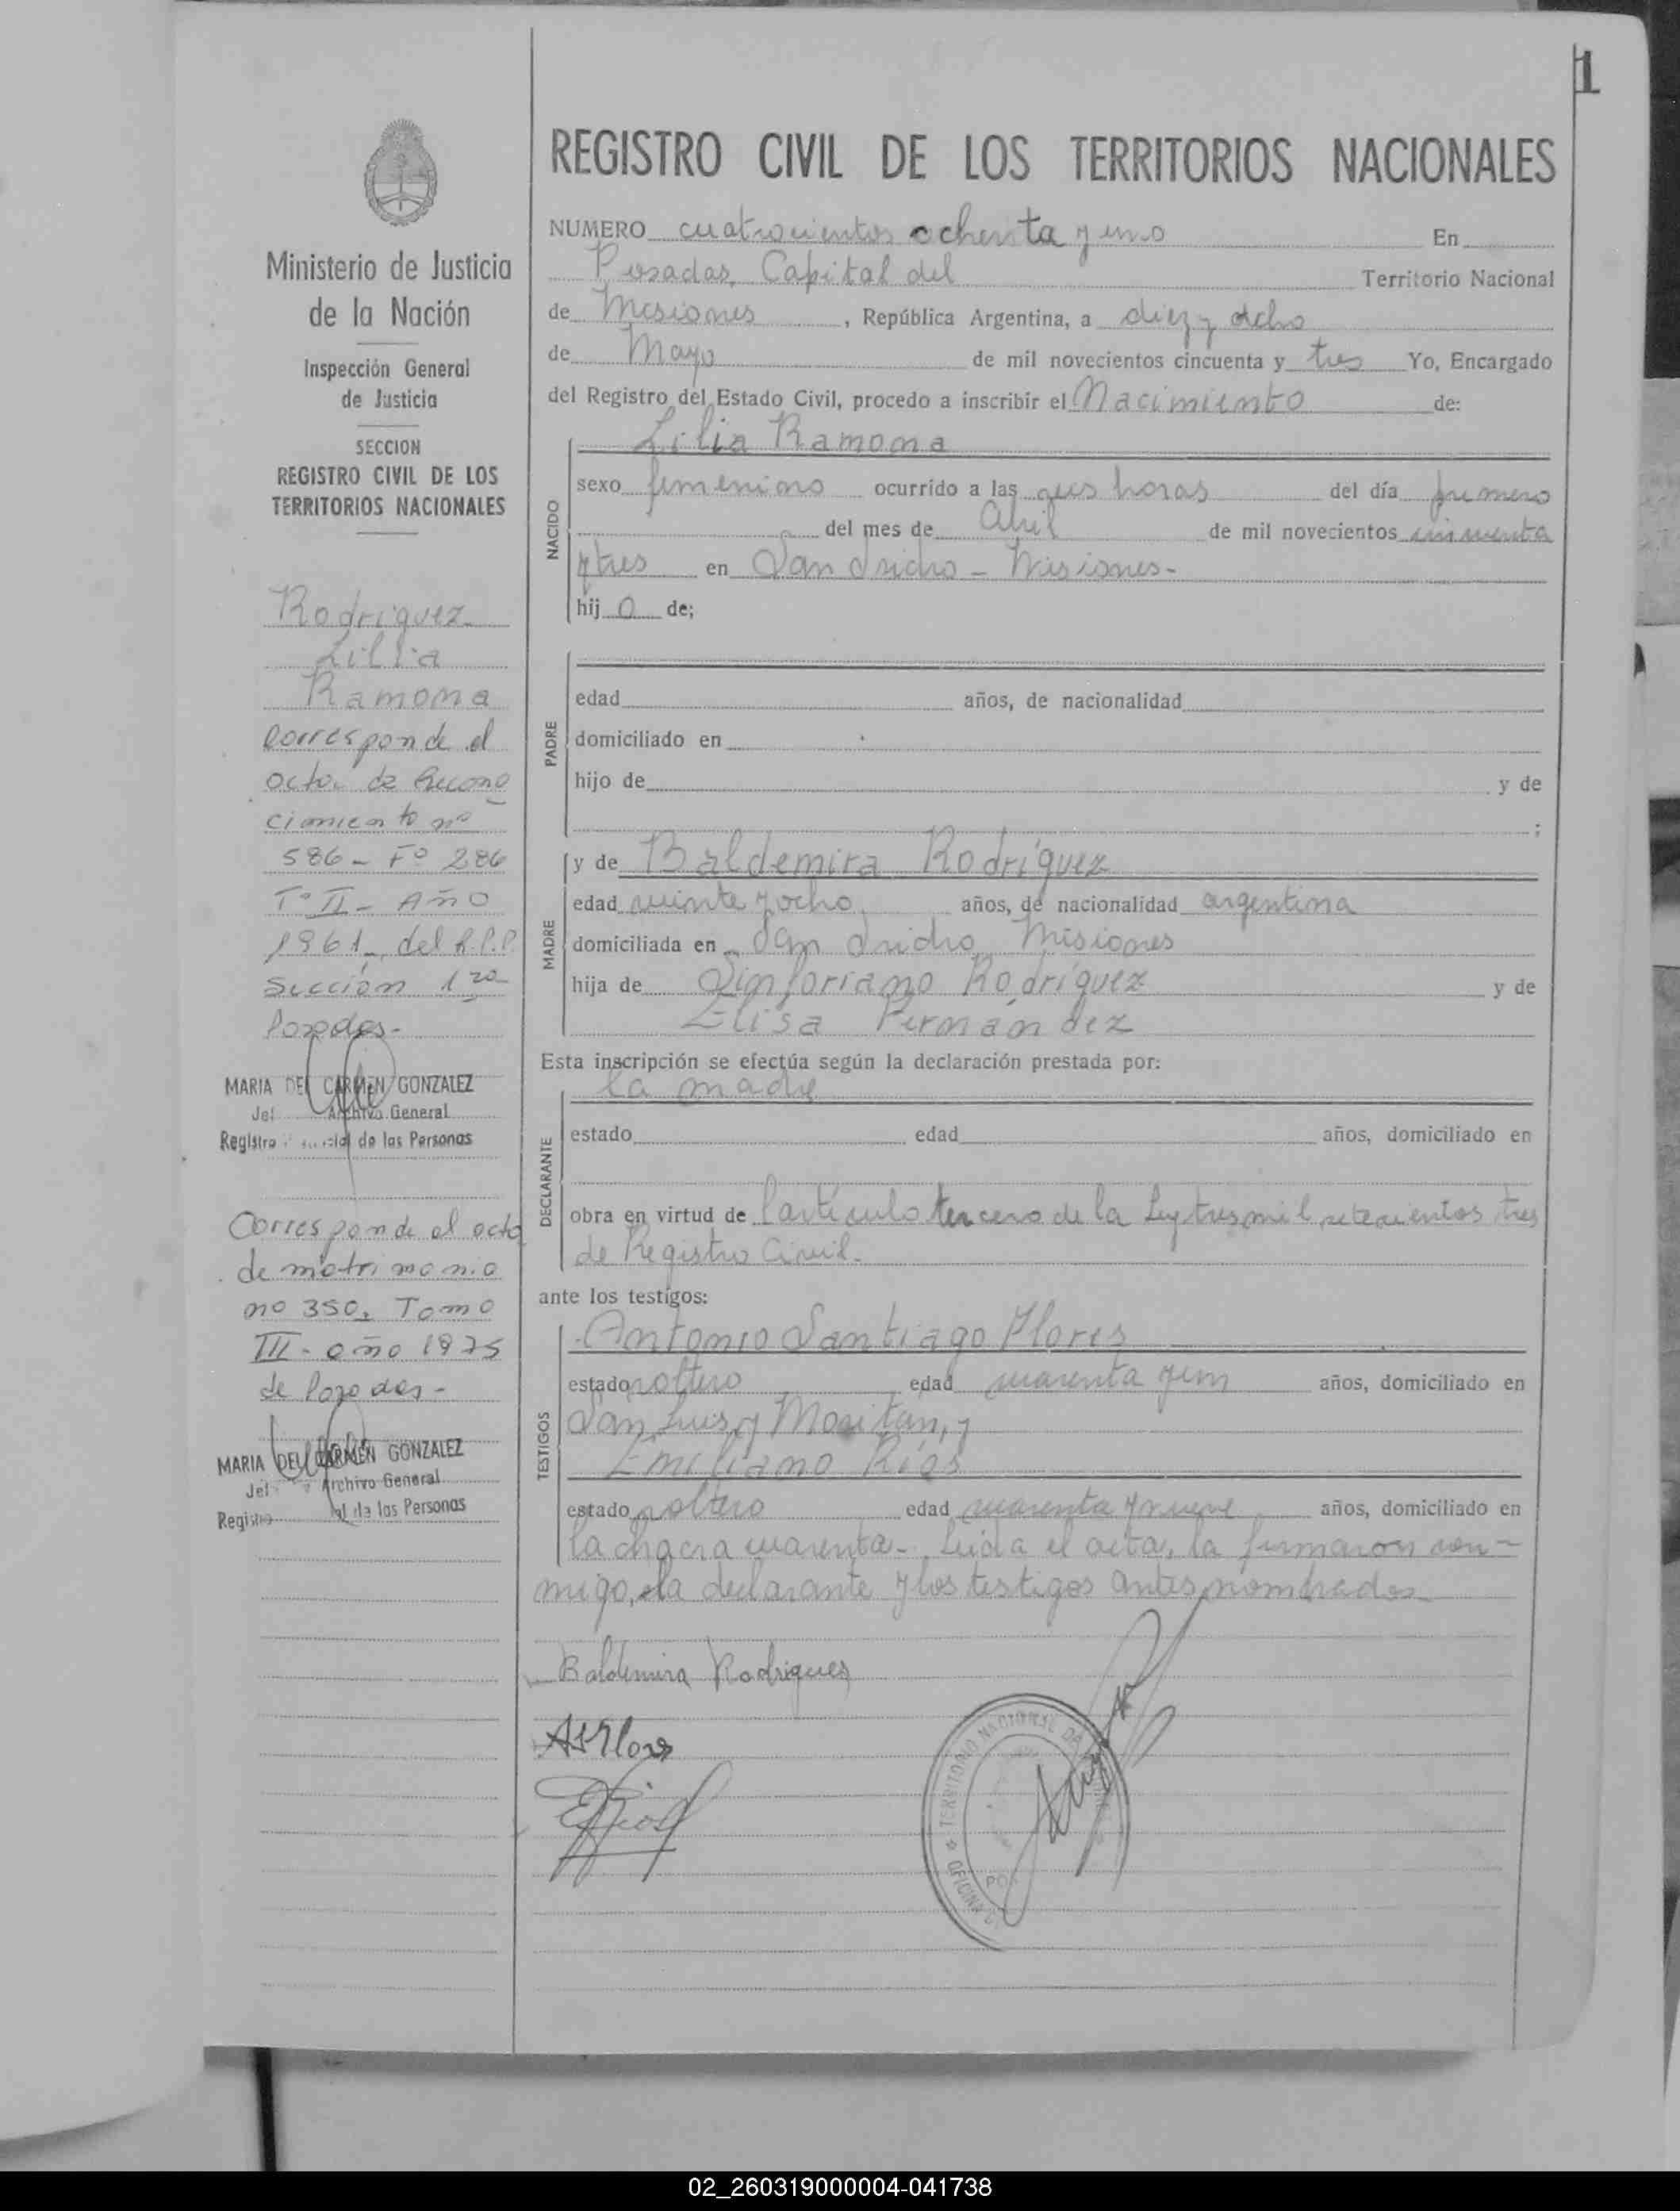 1
REGISTRO CIVIL DE LOS TERRITORIOS NACIONALES
NUMERO cuatrocientos ochenta y uno En
Posadas, Capital del Territorio Nacional
de Misiones, República Argentina, a diez y ocho
de Mayo de mil novecientos cincuenta y tres Yo, Encargado
del Registro del Estado Civil, procedo a inscribir el Nacimiento de:
NACIDO
Lilia Ramona
sexo femenino ocurrido a las seis horas del día primero
del mes de Abril de mil novecientos cincuenta
y tres en San Isidro - Misiones-
hij o de;
PADRE
edad años, de nacionalidad
domiciliado en
hijo de y de
;
MADRE
y de Baldemira Rodríguez
edad veinte y ocho años, de nacionalidad argentina
domiciliada en San Isidro Misiones
hija de Sinforiano Rodríguez y de
Elisa Fernández
Esta inscripción se efectúa según la declaración prestada por:
DECLARANTE
la madre
estado edad años, domiciliado en
obra en virtud de l artículo tercero de la Ley tres mil setecientos tres
de Registro Civil.-
ante los testigos:
TESTIGOS
Antonio Santiago Flores
estado soltero edad cuarenta y un años, domiciliado en
San Luis y Moritán, y
Emiliano Ríos
estado soltero edad cuarenta y nueve años, domiciliado en
la chacra cuarenta.- Leída el acta, la firmaron con-
migo, la declarante y los testigos antes nombrados.
Baldemira Rodrigues
ASFlores
ERios
TERRITORIO NACIONAL
OFICINA
Ministerio de Justicia
de la Nación
Inspección General
de Justicia
SECCION
REGISTRO CIVIL DE LOS
TERRITORIOS NACIONALES
Rodríguez
Lilia
Ramona
Corresponde el
acta de Recono
cimiento nº
586 - Fº 286
Tº II - Año
1961 - del R.P.P
Sección 1ra
Posadas-
MARIA DEL CARMEN GONZALEZ
Jef Archivo General
Registro de las Personas
Corresponde el acta
de matrimonio
nº 350, Tomo
III - año 1975
de Posadas-
MARIA DEL CARMEN GONZALEZ
Jef Archivo General
Registro de las Personas
02_260319000004-041738